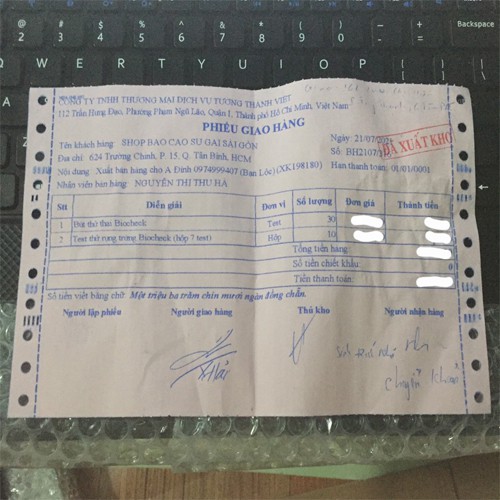 CÔNG TY TNHH THƯƠNG MẠI DỊCH VỤ TƯỜNG THÀNH VIỆT
112 Trần Hưng Đạo, Phường Phạm Ngũ Lão, Quận 1, Thành phố Hồ Chí Minh, Việt Nam
PHIẾU GIAO HÀNG
Tên khách hàng SHOP BAO CAO SU GAI SÀI GÒN
Ngày: 21/07/
Địa chỉ 624 Trường Chinh, P. 15, Q. Tân Bình, HCM
Số: BH2107/
ĐÃ XUẤT KHO
Nội dung Xuất bán hàng cho A Định 0974999407 (Ban Lộc) (XK198180)
Hạn thanh toán: 01/01/0001
Nhân viên bán hàng: NGUYỄN THỊ THU HÀ
Stt Diễn giải Đơn vị Số lượng Đơn giá Thành tiền
1 Bút thử thai Biocheck Test 30
2 Test thử rụng trứng Biocheck (hộp 7 test) Hộp 10
Tổng tiền hàng:
Số tiền chiết khấu: 0
Tiền thanh toán:
Số tiền viết bằng chữ: Một triệu ba trăm chín mươi ngàn đồng chẵn.
Người lập phiếu Người giao hàng Thủ kho Người nhận hàng
chuyển khoản
@ # $ % ^ & * ( ) _ +
2 3 4 5 6 7 8 9 0 - =
Backspace
W E R T Y U I O P